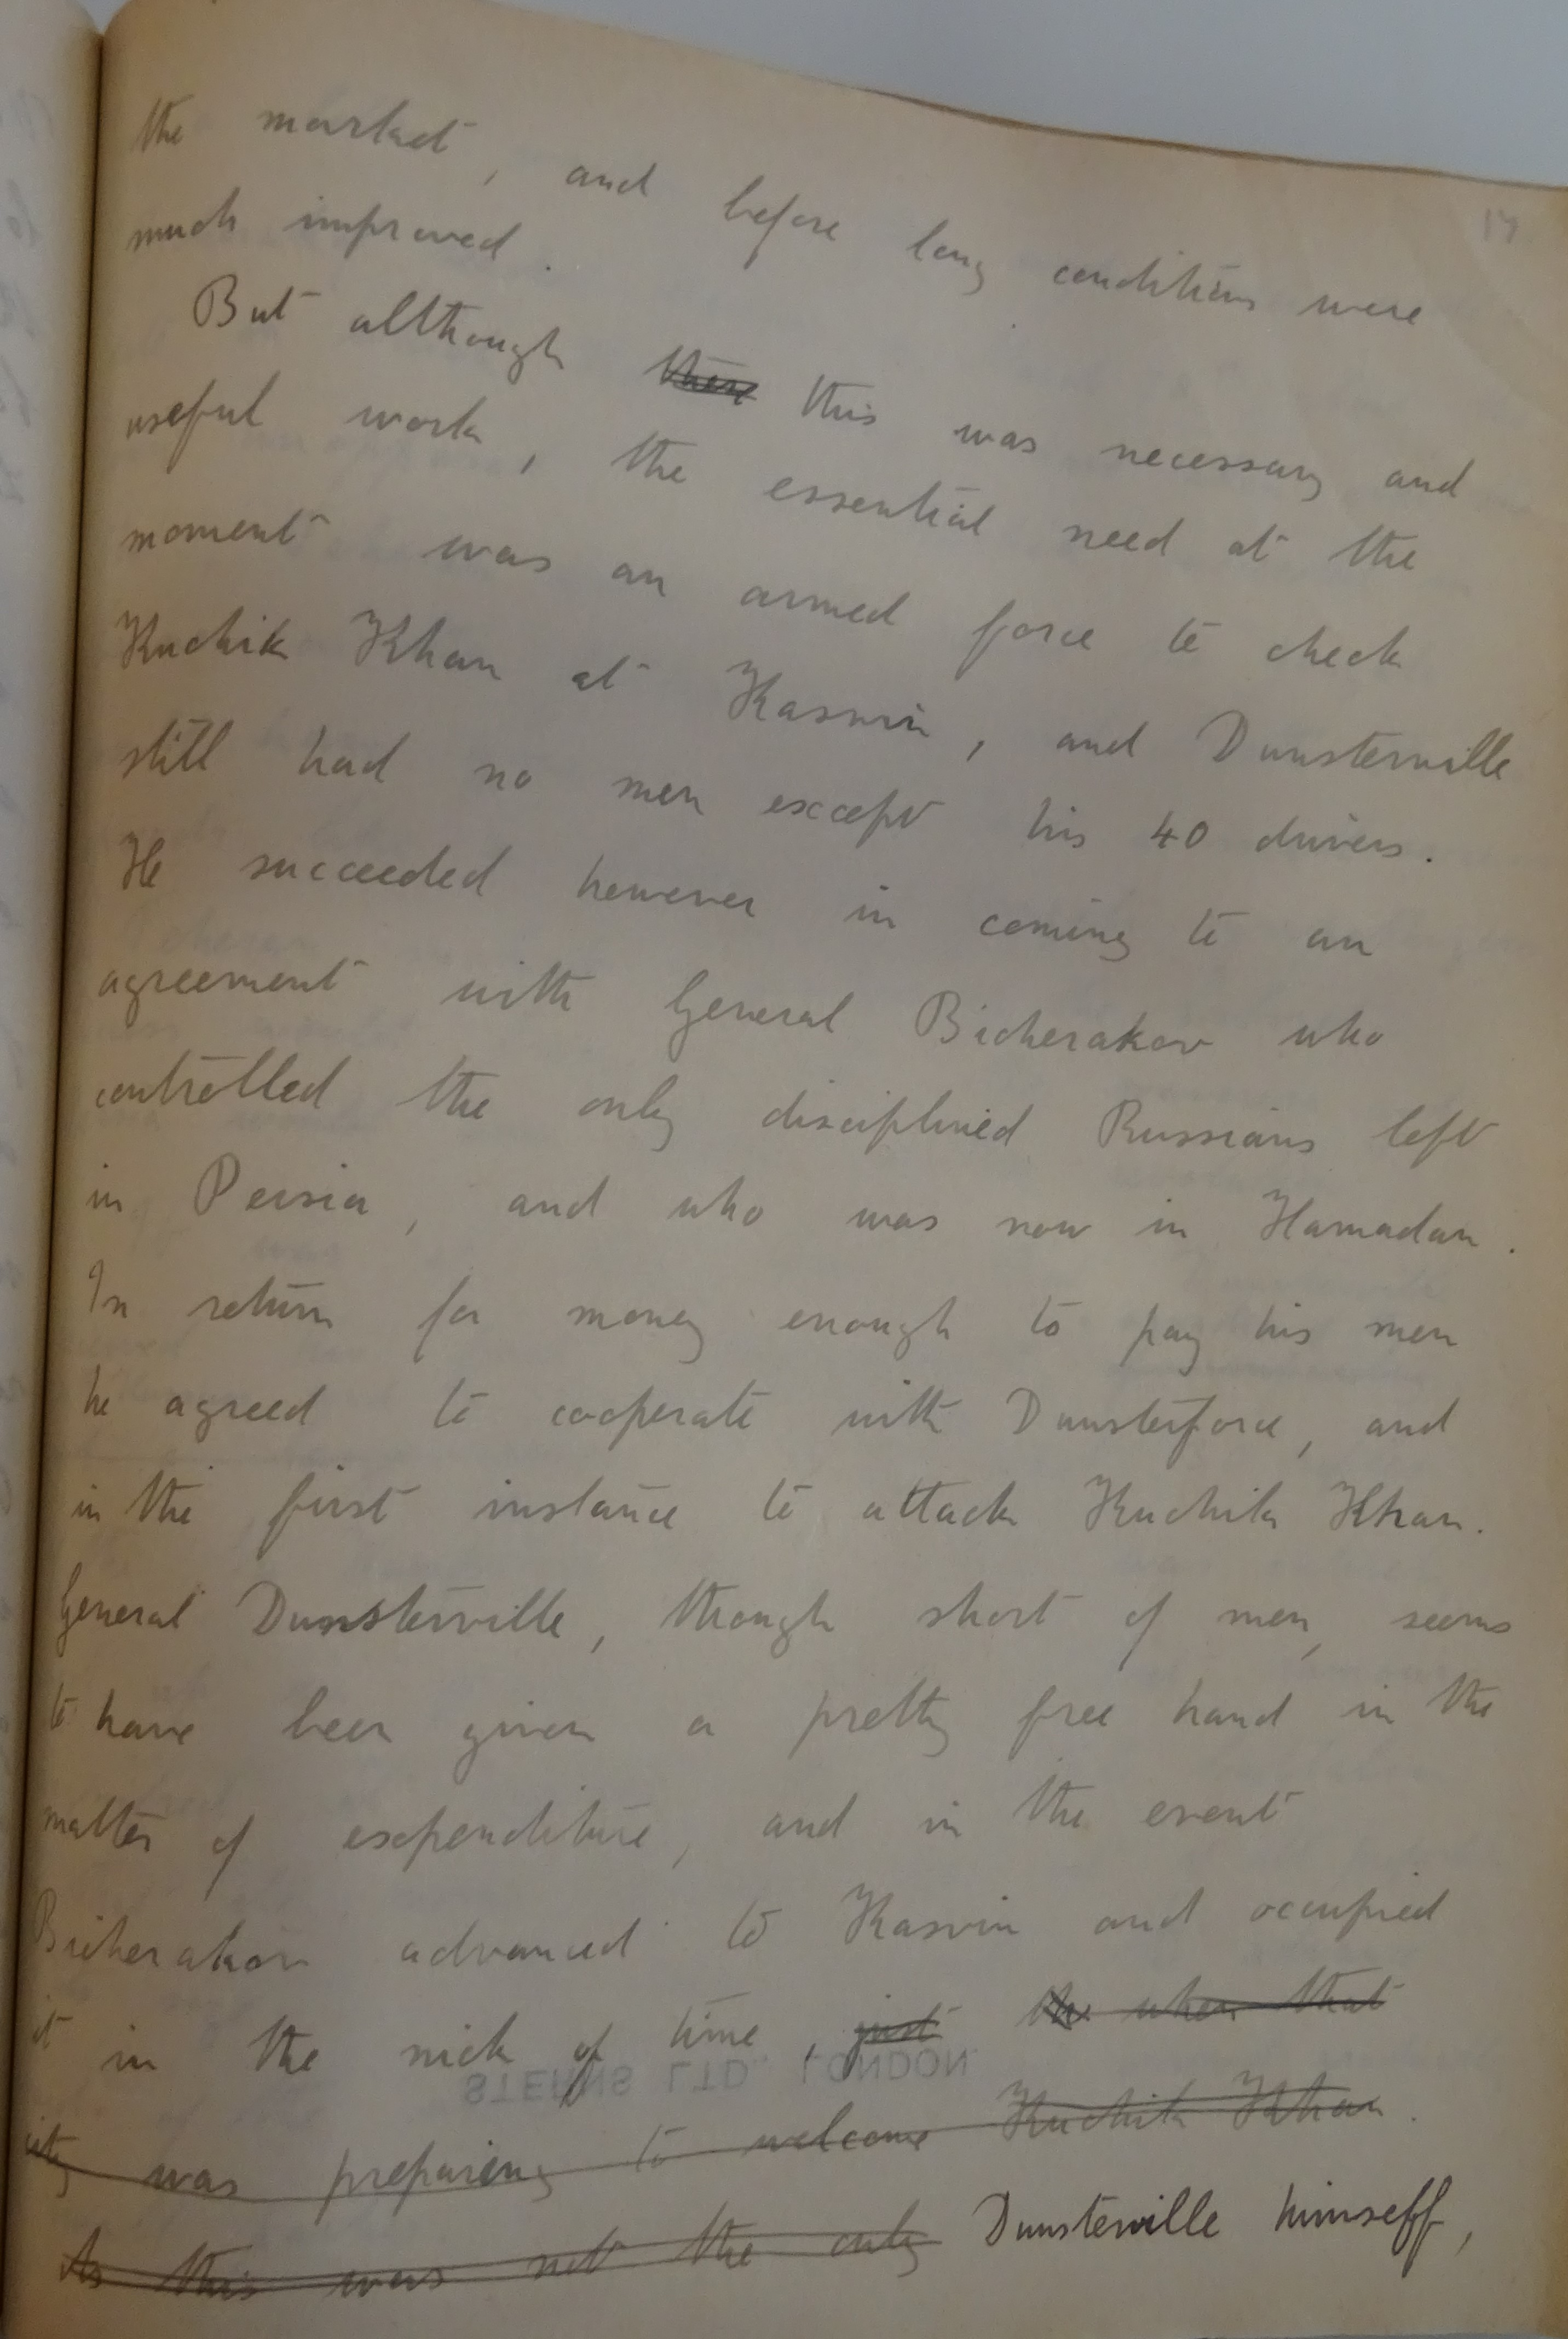 17
the market, and before long conditions were
much improved.
But although ~~there~~ this was necessary and
useful work, the essential need at the
moment was an armed force to check
Kuchik Khan at Kasvin, and Dunsterville
still had no men except his 40 drivers.
He succeeded however in coming to an
agreement with General Bicherakov who
controlled the only disciplined Russians left
in Persia, and who was now in Hamadan.
In return for money enough to pay his men
he agreed to cooperate with Dunsterforce, and
in the first instance to attack Kuchik Khan.
General Dunsterville, though short of men, seems
to have been given a pretty free hand in the
matter of expenditure, and in the event
Bicherakov advanced to Kasvin and occupied
it in the nick of time, ~~just~~ ~~when that~~
STERNS LTD. LONDON
~~city was preparing to welcome Kuchik Khan.~~
~~As this was not the only~~ Dunsterville himself,